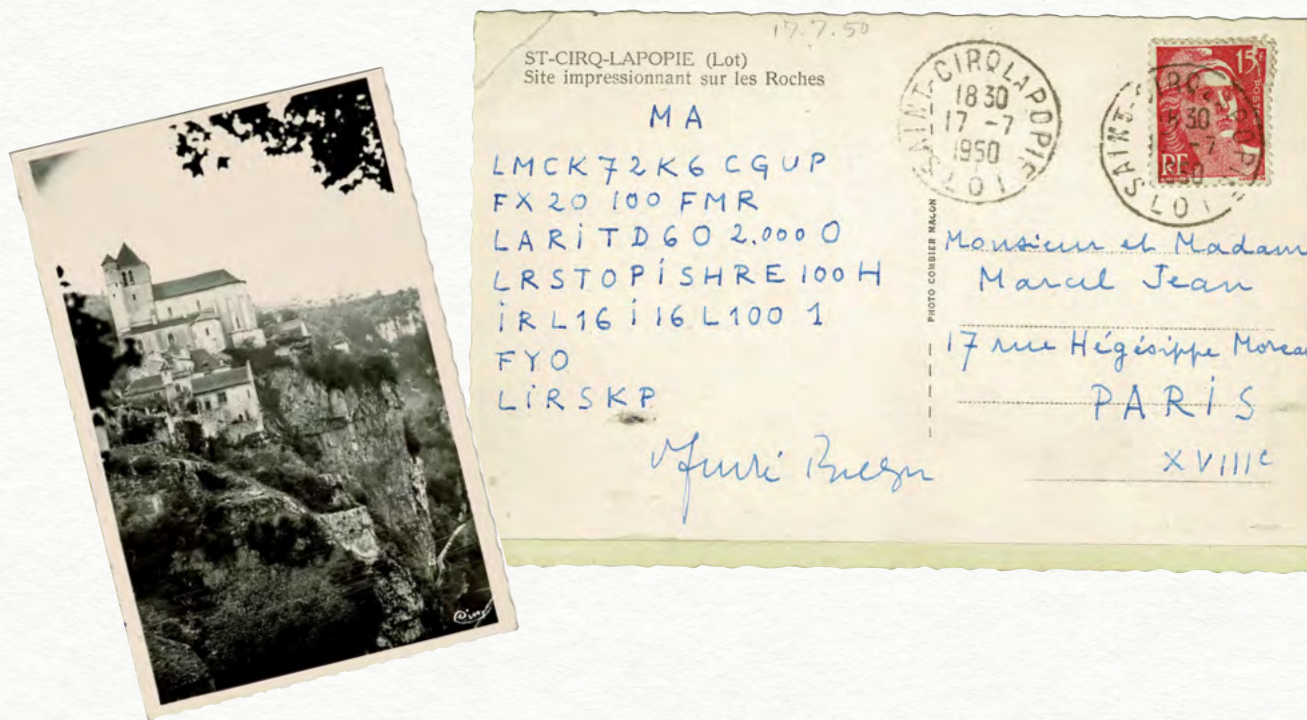 17.7.50
ST-CIRQ-LAPOPIE (Lot)
Site impressionnant sur les Roches
MA
LMCK72K6 CGUP
FX 20 100 FMR
LARiTD6O 2.000 O
LRSTOPiSHRE100H
iRL16 i 16 L100 1
FYO
LiRSKP
SAINT-CIRQ LAPOPIE
18 30
17 -7
1950
LOT
15f
RF
SAINT-CIRQ LAPOPIE
18 30
-7
950
LOT
PHOTO COMBIER MACON
Monsieur et Madam
Marcel Jean
17 rue Hégésippe Moreau
PARiS
XVIIIe